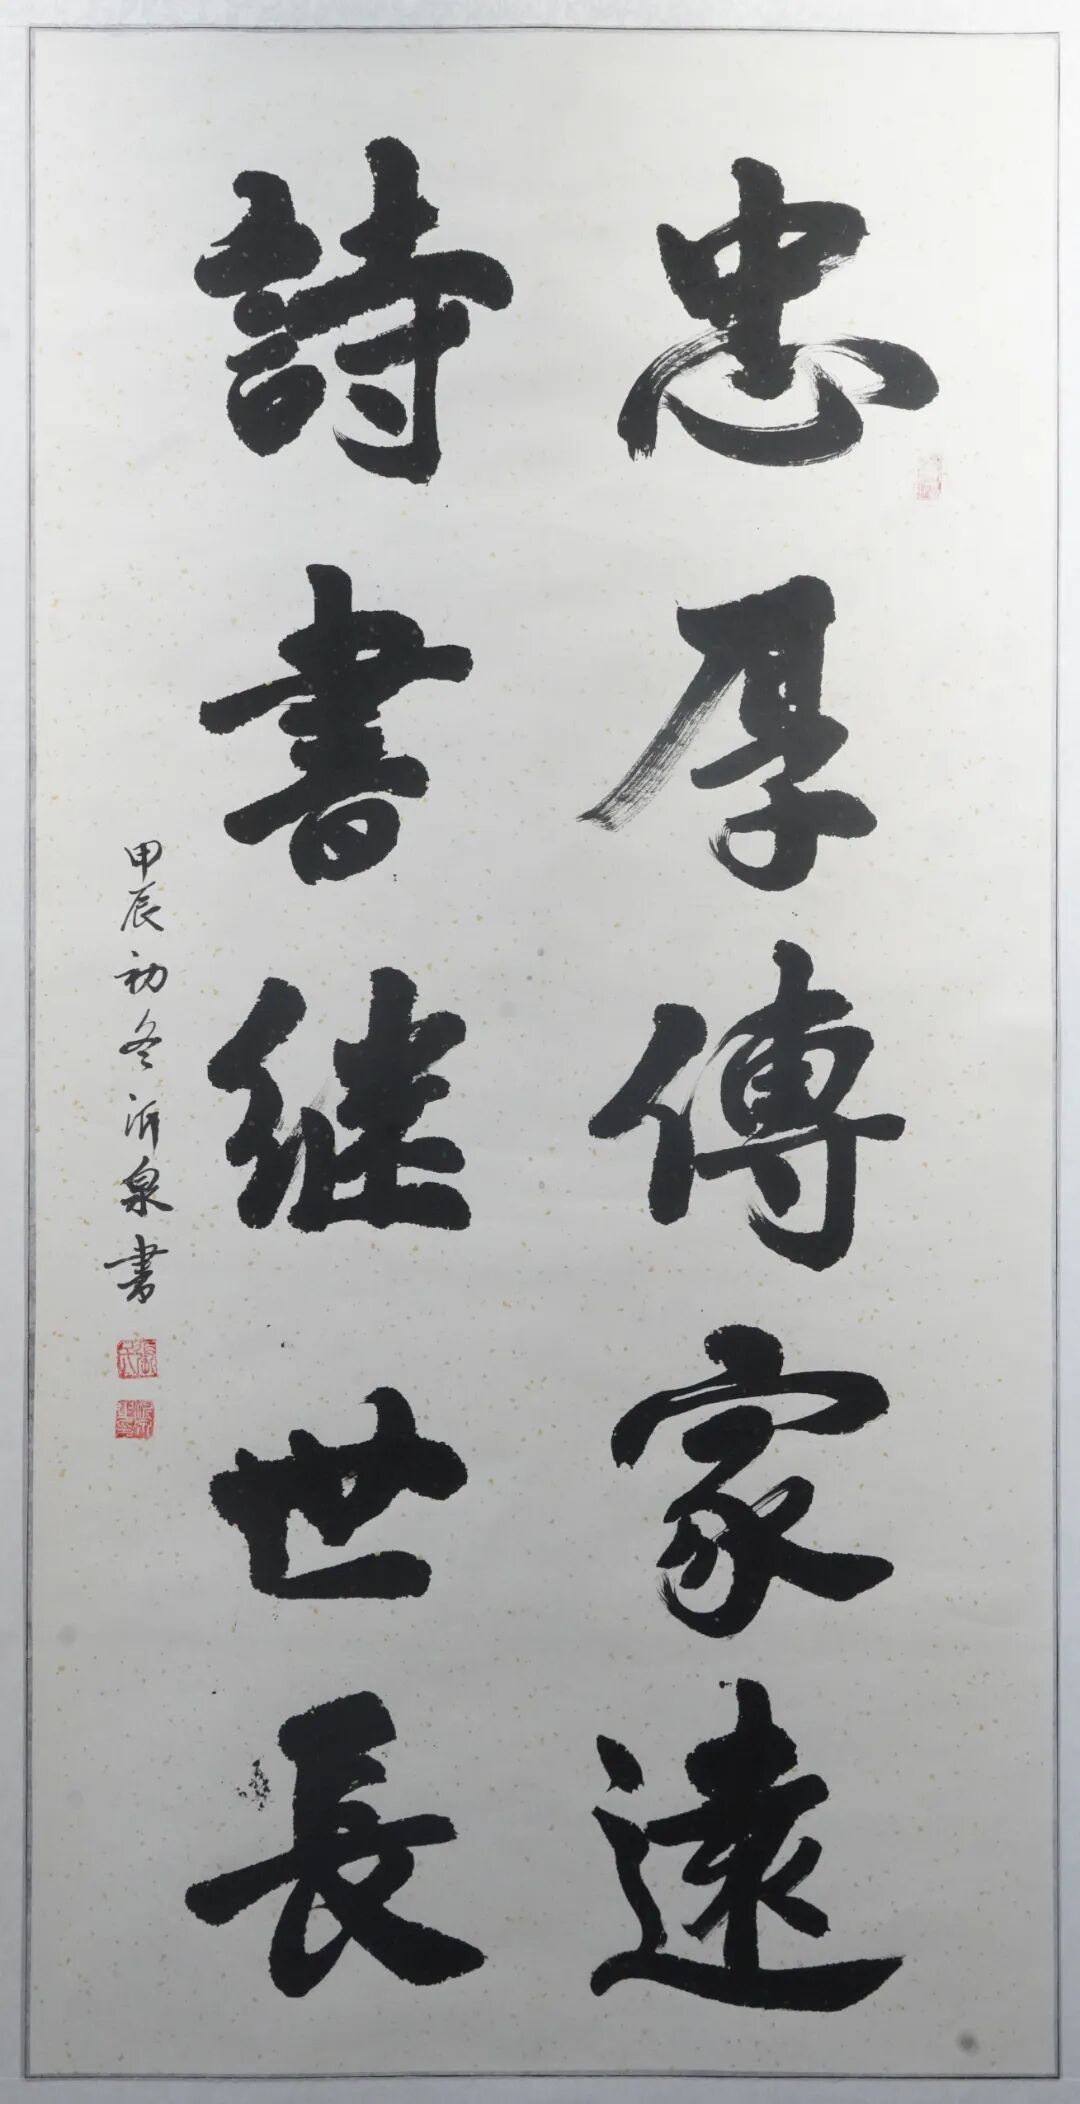 忠厚傳家遠
詩書继世長
甲辰初冬沂泉書